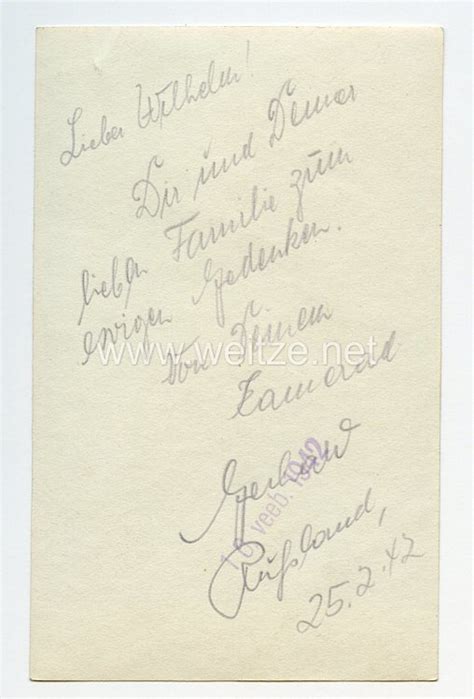 Lieber Wilhelm!
Dir und Deiner
lieben Familie zum
ewigen Gedenken.
www.weitze.net
Von Deinem
Kamerad
Gerhard
16 veeb. 1942
Rußland,
25.2.42